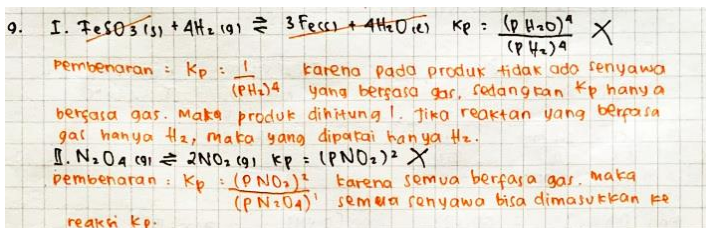 9. I. FeSO3 (s) + 4H₂ (g) ⇌ 3 Fe(s) + 4H₂O (l) Kp : (P H₂O)⁴ / (P H₂)⁴ X
Pembenaran : Kp : 1 / (PH₂)⁴ karena pada produk tidak ada senyawa
yang berfasa gas, sedangkan Kp hanya
berfasa gas. Maka produk dihitung 1. Jika reaktan yang berfasa
gas hanya H₂, maka yang dipakai hanya H₂.
II. N₂O₄ (g) ⇌ 2NO₂ (g) Kp = (PNO₂)² X
pembenaran : Kp : (P NO₂)² / (P N₂O₄)¹ karena semua berfasa gas. maka
semua senyawa bisa dimasukkan ke
reaksi Kp.